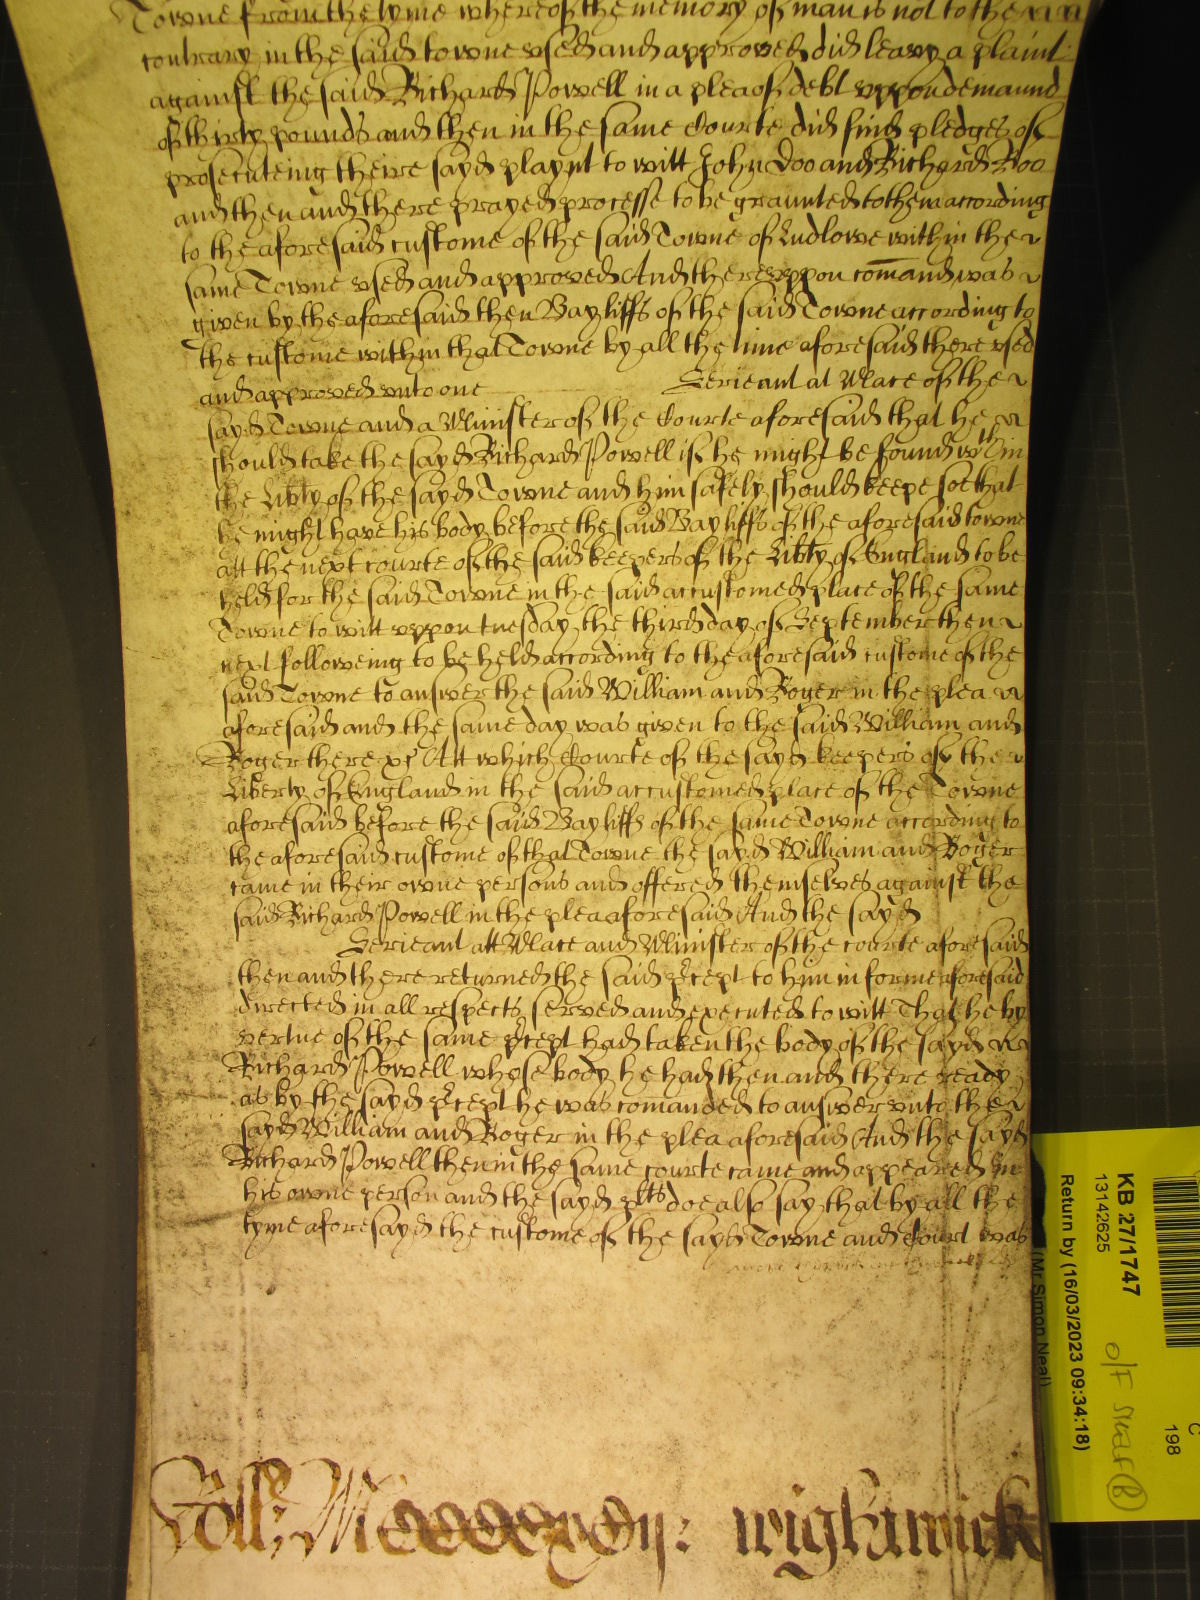 Towne from the tyme whereof the memory of man is not to the
contrary in the said towne vsed and approved did leavy a plaint
against the said Richard Powell in a plea of debt vppon demaund
of thirty pounds and then in the same Courte did find pledges of
prosecuteing theire sayd playnt to witt John Doo and Richard Roo
and then and there prayed processe to be graunted to them according
to the aforesaid custome of the said Towne of Ludlowe within the
same Towne vsed and approved And therevppon comand was
given by the aforesaid then Bayliffs of the said Towne according to
the custome within that Towne by all the time aforesaid there vsed
and approved vnto one Serieant at Mace of the
sayd Towne and a Minister of the Courte aforesaid that he
should take the sayd Richard Powell if he might be found wthin
the Libty of the sayd Towne and him safely should keepe soe that
he might have his body before the said Bayliffs of the aforesaid towne
att the next courte of the said keepers of the Libty of England to be
held for the said Towne in the said accustomed place of the same
Towne to witt vppon tuesday the third day of September then
next followeing to be held according to the aforesaid custome of the
said Towne to answer the said William and Roger in the plea
aforesaid and the same day was given to the said William and
Roger there &c Att which Courte of the sayd keepers of the
Liberty of England in the said accustomed place of the Towne
aforesaid before the said Bayliffs of the same Towne according to
the aforesaid custome of that Towne the sayd William and Roger
came in their owne persons and offered themselves against the
said Richard Powell in the plea aforesaid And the sayd
Serieant att Mace and Minister of the courte aforesaid
then and there returned the said pcept to him in forme aforesaid
directed in all respects served and executed to witt That he by
vertue of the same pcept had taken the body of the sayd
Richard Powell whose body he had then and there ready
as by the sayd pcept he was comanded to answer vnto the
sayd William and Roger in the plea aforesaid And the sayd
Richard Powell then in the same courte came and appeared in
his owne person and the sayd plts doe also say that by all the
tyme aforesayd the custome of the sayd Towne and Court was
Roll: MCCCCxvij: wightwick
KB 27/1747
13142625
Return by (16/03/2023 09:34:18)
(Mr Simon Neal)
O/F
C
198